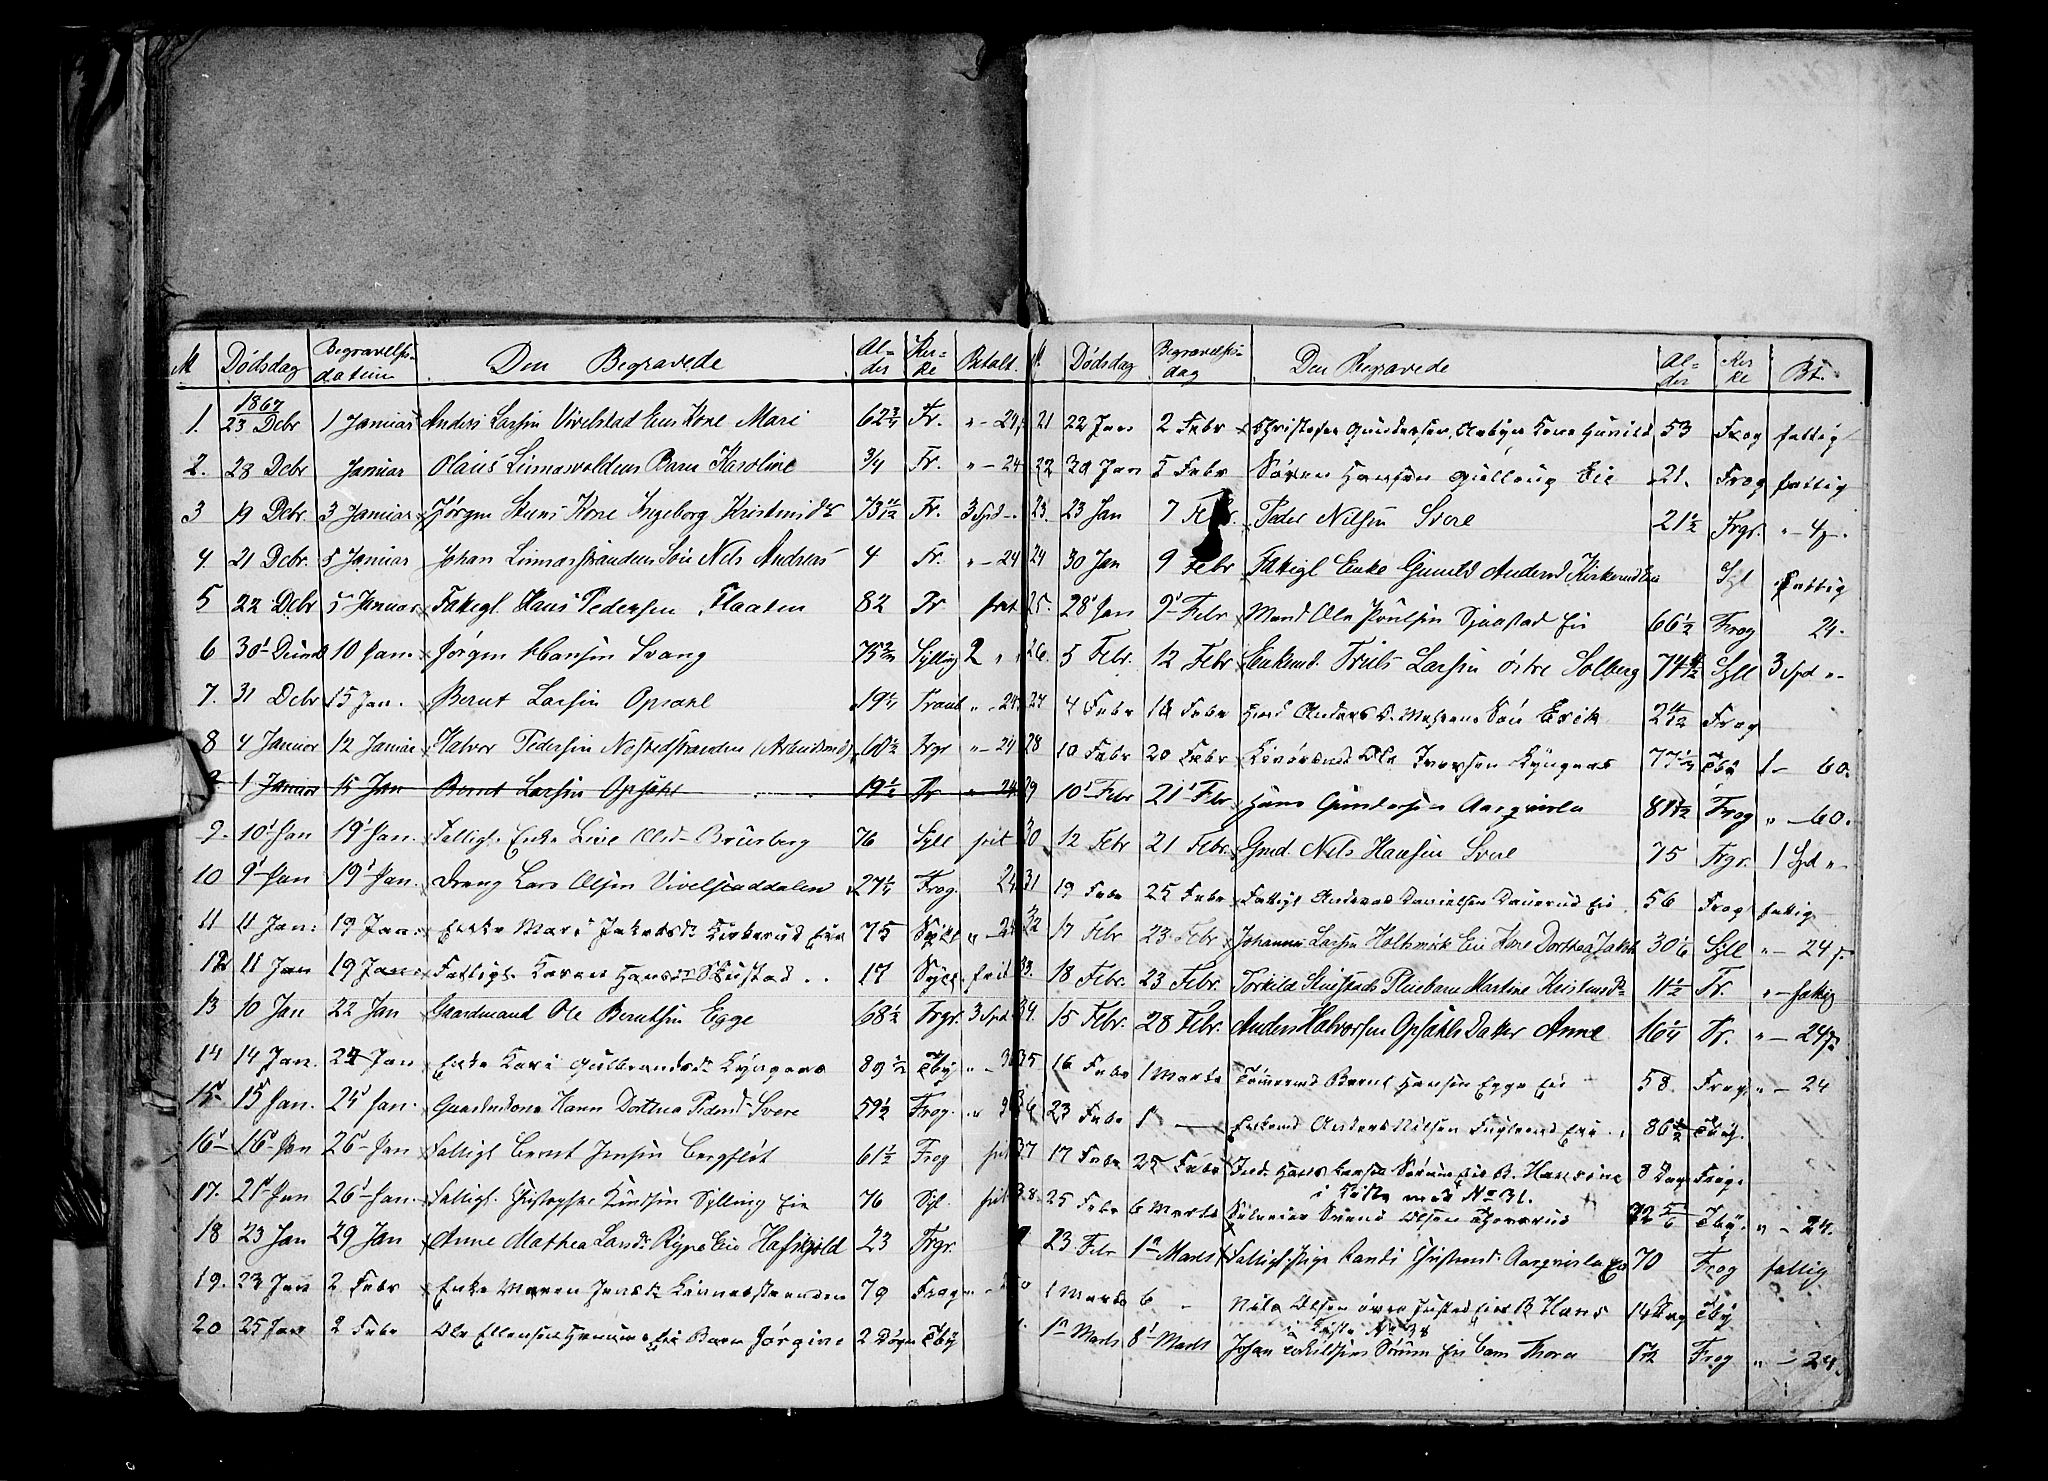 № Dødsdag Begravelsesdatum Den Begravede Alder Kirke Betalt.
1867
1. 23 Debr 1 Januar Anders Larsen Vivelstad Eies Kone Mari 62 3/4 Fr. " - 24
2. 28 Debr Januar Olaus Linnesvoldens Barn Karoline 3/4 Fr. " - 24
3 19 Debr. 3 Januar Jørgen Kone Ingeborg Kristensd. 73 Fr. 3 Spd -
4. 21 Debr. 5 Januar Johan Linnesstrandens Søn Nels Andreas 4 Fr. " - 24
5 22 Debr 5 Januar Fattigl. Hans Pedersen Flaaten 82 Fr frit
6 30 10 Jan. Jørgen Hansen Svang 75 Sylling 2 "
7. 31 Debr 15 Jan. Bernt Larsen Opsahl 19 1/2 " - 24
8 4 Januar 12 Januar Halvor Pedersen Nøstedstranden (Arbeidsmd) 60 1/2 Frgr " - 24
9 1 Januar 15 Jan Bernt Larsen Opsahl 19 1/2 Fr " 24
9. 10 Jan 19 Jan. Fattigl. Enke Live Olsd. Brusberg 76 Syll frit
10 9 Jan 19 Jan. Dreng Lars Olsen Vivelstaddalen 27 1/2 Frog. 24
11 11 Jan: 19 Jan. Enke Mari Jakobsd. Kirkerud Eie 75 Syll " - 24
12 11 Jan 19 Jan. Fattigl. Karen Hansd. Skustad . . 17 Syll. frit
13 10 Jan 22 Jan Gaardmand Ole Berntsen Egge 68 1/2 Frgr. 3 Spd.
14 14 Jan. 24 Jan Enke Kari Gulbrandsd. Kyngaas 89 1/2 Tby " - 36
15 15 Jan. 25 Jan. Gaardmkone Karen Dorthea Pedersd. Svere 59 1/2 Frog. " 36
16 16 Jan 26 Jan Fattigl. Bernt Jensen Bergfløt 61 1/2 Frog frit
17. 21 Jan 26 Jan. Fattigl. Christopher Knudsen Sylling Eie 76 Syl. frit
18 23 Jan 29 Jan Anne Mathea Larsd. Rype Eie Hafskjold 23 Frgr.
19. 23 Jan 2 Febr Enke Maren Jensd. Linnesstranden 79 Frog
20 25 Jan 2 Febr Ole Ellensen Hennum Eie Barn Jørgine 2 Døgn Tby
№ Dødsdag Begravelsesdag Den Begravede Alder Kirke Bt.
21 22 Jan 2 Febr Christofer Gundersen Aabyes Kone Gunild 53 Frog fattig
22 30 Jan 5 Febr Søren Hansen Gjellaug Eie 21. Frog fattig
23. 23 Jan 7 Febr. Peder Nilsen Svere 21 1/2 Frgr. " - 4 -
24 30 Jan 9 Febr Fattigl Enke Gunild Andersd Kirkerud Eie Syl fattig
25. 28 Jan 9 Febr Mand Ole Poulsen Sjaastad Eie 66 1/2 Frog 24.
26. 5 Febr. 12 Febr Enkemd. Truls Larsen østre Solberg 74 Syll 3 Spd "
27 4 Febr 14 Febr Anders Søn Erik 2 Frog
28 10 Febr 20 Febr Ole Iversen Kyngaas 77 1/2 Tby 1 - 60.
29 10 Febr 21 Febr Hans Gundersen Aarqvisla 81 1/2 Frog " - 60.
30. 12 Febr 21 Febr. Gmd. Nels Hansen Svere 75 Frgr. 1 Spd "
31 19 Febr 25 Febr Fattigl Andreas Danielsen Dauerud Eie 56 Frog fattig
32 17 Febr 23 Febr Johannes Larsen Holtsmark Eie Kone Dorthea Jakobsd 30 1/6 Syll " - 24
33. 18 Febr. 23 Febr. Torkild Skustads Pleiebarn Martine Kristensd. 11 1/2 Fr. " - fattig
34. 15 Febr. 28 Febr. Anders Halvorsen Opsahls Datter Anne 16 1/4 Fr. " - 24
35. 16 Febr 1 Marts Tømmermd Bernt Hansen Egge Eie 58. Frog. " - 24
36 23 Febr 1 — Enkemd Anders Nilsen Fuglerud Eie 86 1/2 Tby.
37 17 Febr 25 Febr Hans Larsen Sørum Eie B. Hansine 8 Dage Frog.
i Kiste med No 31.
38. 25 Febr 6 Marts Svend Olsen 72 5/6 Tby. " - 24.
23 Febr 1 Marts Fattigl. Pige Randi Christensd. Aarqvisla Eie 70 Frog fattig
1 Marts 6 " Nils Olsen øvre Justad Eie B Hans 14 Dag Tby
i Kiste No 38
1 Marts 8 Marts Johan Eskildsen Sørum Eie Barn Thora 1 1/2 Frog " - 24.